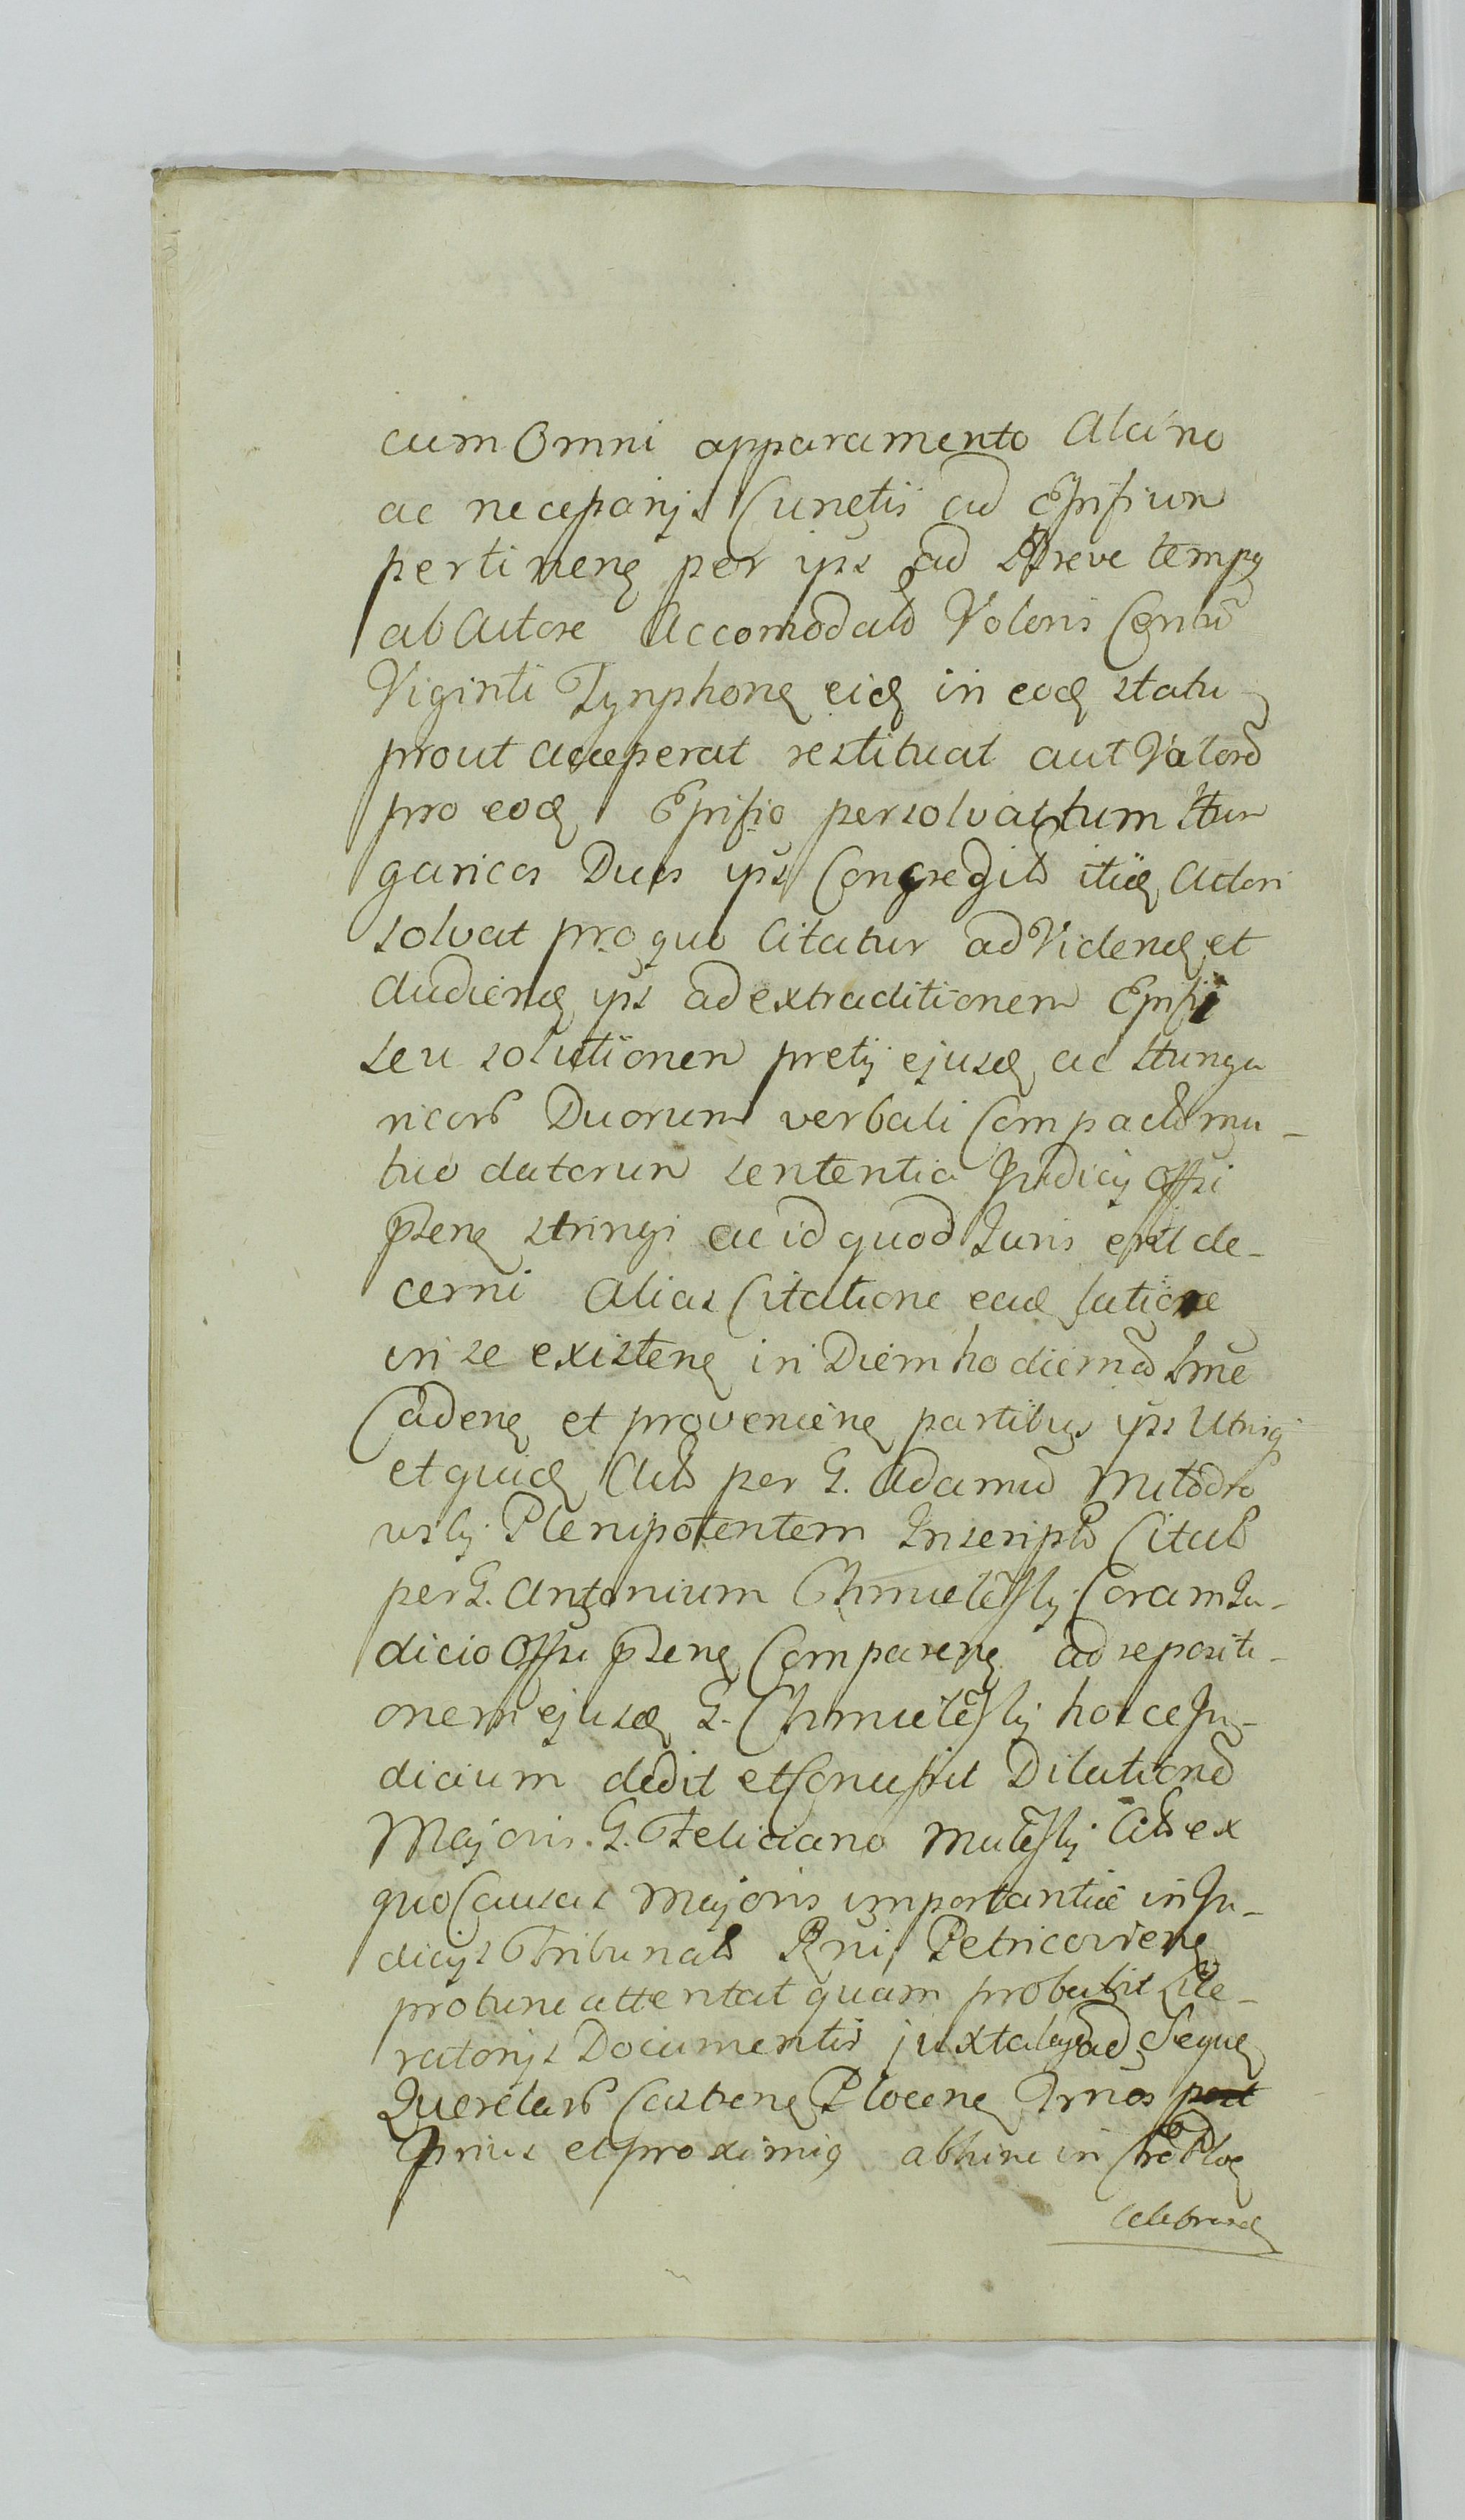 cum Omni apparamento Alcino
ac necessarijs Cunctis ad Ephipium
pertinen per ips ad breve temps
ab Actore Accomodato Valoris Centu
Viginti Tynphon eid in eod statu
prout acceperat restituat aut Valore
pro eod Ephipio persolvat tum Hun
garicos Duos ips Congredito itid Actori
solvat pro quo Citatur ad Vidend et
Audiend ips ad extraditionem Ephipi
seu solutionem pretij ejusd ac Hunga
ricor Duorum verbali Compacto mu-
tuo datorum sententia Judicij Offsi
psen stringi ac id quod Juris erit de-
cerni Alias Citatione ead latiore
in se existen in Diem hodiernu Ime
Caden et provenien partibus ips Utrisq
et quid Act per G. Adamu Milodro
wsky Plenipotentem Inscript Citat
per G. Antonium Chmielesky Coram Ju-
dicio Offsi psen Comparen ad repositi-
onem ejusd G. Chmielesky hocce Ju-
dicium dedit et Concessit Dilatione
Majoris. G. Feliciano Milesky Cit ex
quo Causas Majoris importantiæ in Ju-
dicijs Tribunal Rgni Petricovien
protunc attentat quam probabit Lite-
ratorijs Documentis juxta lege ad Seque
Querelar Castren Plocen Trnos
prius et proximis abhinc in Cro Ploc
celebrand